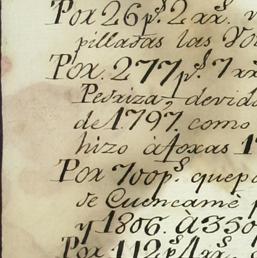 Por 26 p.s 2 rr.s
pilladas las Vo
Por. 277 p.s 7 rr
Pedriza, devida
de 1797. como
hizo à foxas 1
Por 700 p.s que pa
de Cuencamè p
y 1806. À 350 p
Por 112 p.s 4 rr.s